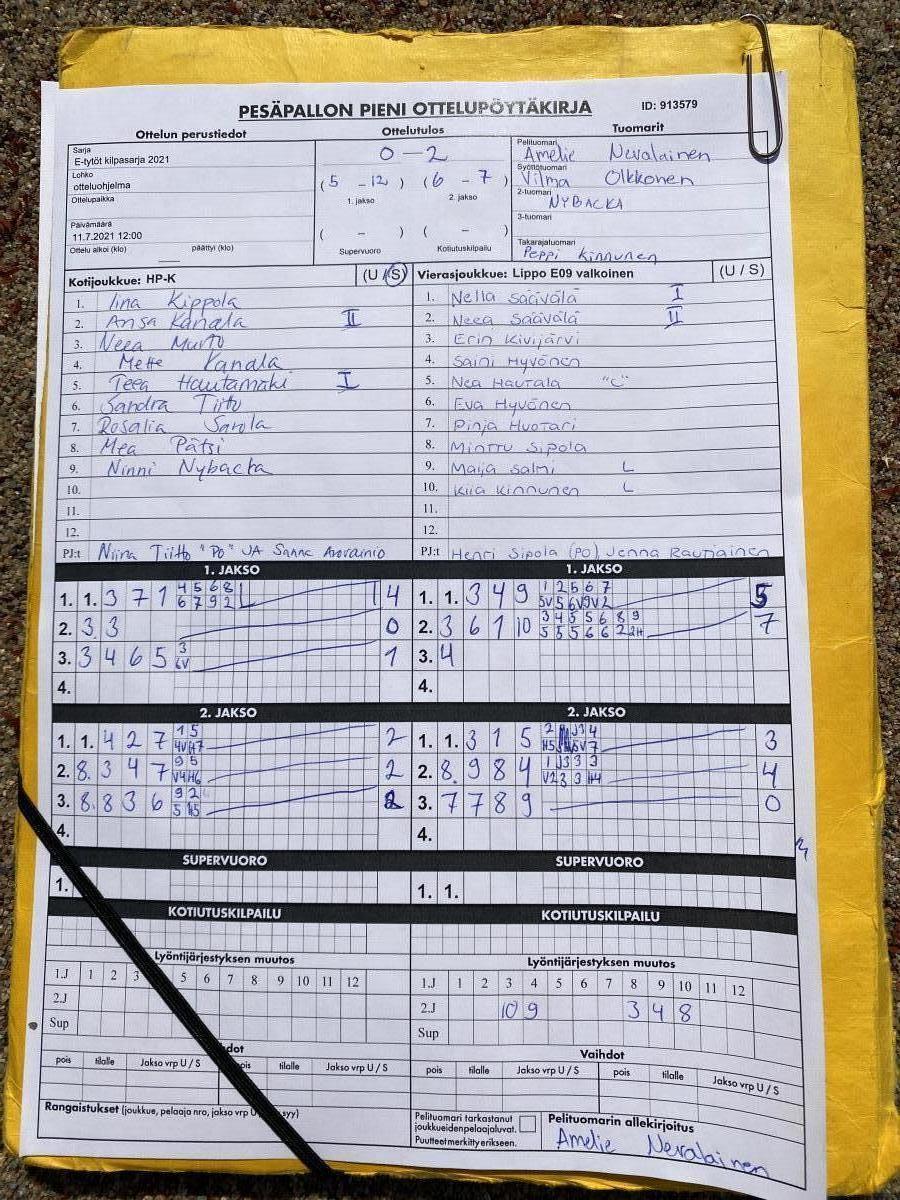 PESÄPALLON PIENI OTTELUPÖYTÄKIRJA ID: 913579
Ottelun perustiedot Ottelutulos Tuomarit
Sarja
E-tytöt kilpasarja 2021
Lohko
otteluohjelma
Ottelupaikka
Päivämäärä
11.7.2021 12:00
Ottelu alkoi (klo) päättyi (klo)
0 - 2
(5 - 12) (6 - 7)
1. jakso 2. jakso
( - ) ( - )
Supervuoro Kotiutuskilpailu
Pelituomari
Amelie Nevalainen
Syöttötuomari
Vilma Olkkonen
2-tuomari
NYBACKA
3-tuomari
Takarajatuomari
Peppi Kinnunen
Kotijoukkue: HP-K (U / S)
1. Iina Kippola
2. Ansa Kanala II
3. Neea Murto
4. Mette Kanala
5. Teea Hautamäki I
6. Sandra Tiitto
7. Rosalia Sarola
8. Mea Pätsi
9. Ninni Nybacka
10.
11.
12.
PJ:t Niina Tiitto "PO" JA Sanna
Vierasjoukkue: Lippo E09 valkoinen (U / S)
1. Nella Säävälä I
2. Neea Säävälä II
3. Erin Kivijärvi
4. Saini Hyvönen
5. Nea Hautala "C"
6. Eva Hyvönen
7. Pinja Huotari
8. Minttu Sipola
9. Maija Salmi L
10. Kiia Kinnunen L
11.
12.
PJ:t Henri Sipola (PO) Jenna Rautiainen
1. JAKSO
1. 1. 3 7 1 4 5 6 8 4
6 7 9 2
2. 3 3 0
3. 3 4 6 5 3 1
6V
4.
1. JAKSO
1. 1. 3 4 9 1 2 5 6 7 5
5V 5 6V 9V 2
2. 3 6 1 10 3 4 5 5 6 8 9 7
5 5 5 6 6 2 2H
3. 4
4.
2. JAKSO
1. 1. 4 2 7 1 5 2
4V H7
2. 8. 3 4 7 9 5 2
V4 H6
3. 8. 8 3 6 9 2 2
5 H5
4.
2. JAKSO
1. 1. 3 1 5 3
2. 8. 9 8 4 1 J3 3 3 4
V2 3 3 H4
3. 7 7 8 9 0
4.
SUPERVUORO
1.
SUPERVUORO
1. 1.
KOTIUTUSKILPAILU
KOTIUTUSKILPAILU
Lyöntijärjestyksen muutos
1.J 1 2 3 5 6 7 8 9 10 11 12
2.J
Sup
Lyöntijärjestyksen muutos
1.J 1 2 3 4 5 6 7 8 9 10 11 12
2.J 10 9 3 4 8
Sup
pois tilalle Jakso vrp U / S tilalle Jakso vrp U / S
Vaihdot
pois tilalle Jakso vrp U / S pois tilalle Jakso vrp U / S
Rangaistukset (joukkue, pelaaja nro, jakso vrp syy)
Pelituomari tarkastanut
joukkueidenpelaajaluvat.
Puutteet merkitty erikseen.
Pelituomarin allekirjoitus
Amelie Nevalainen